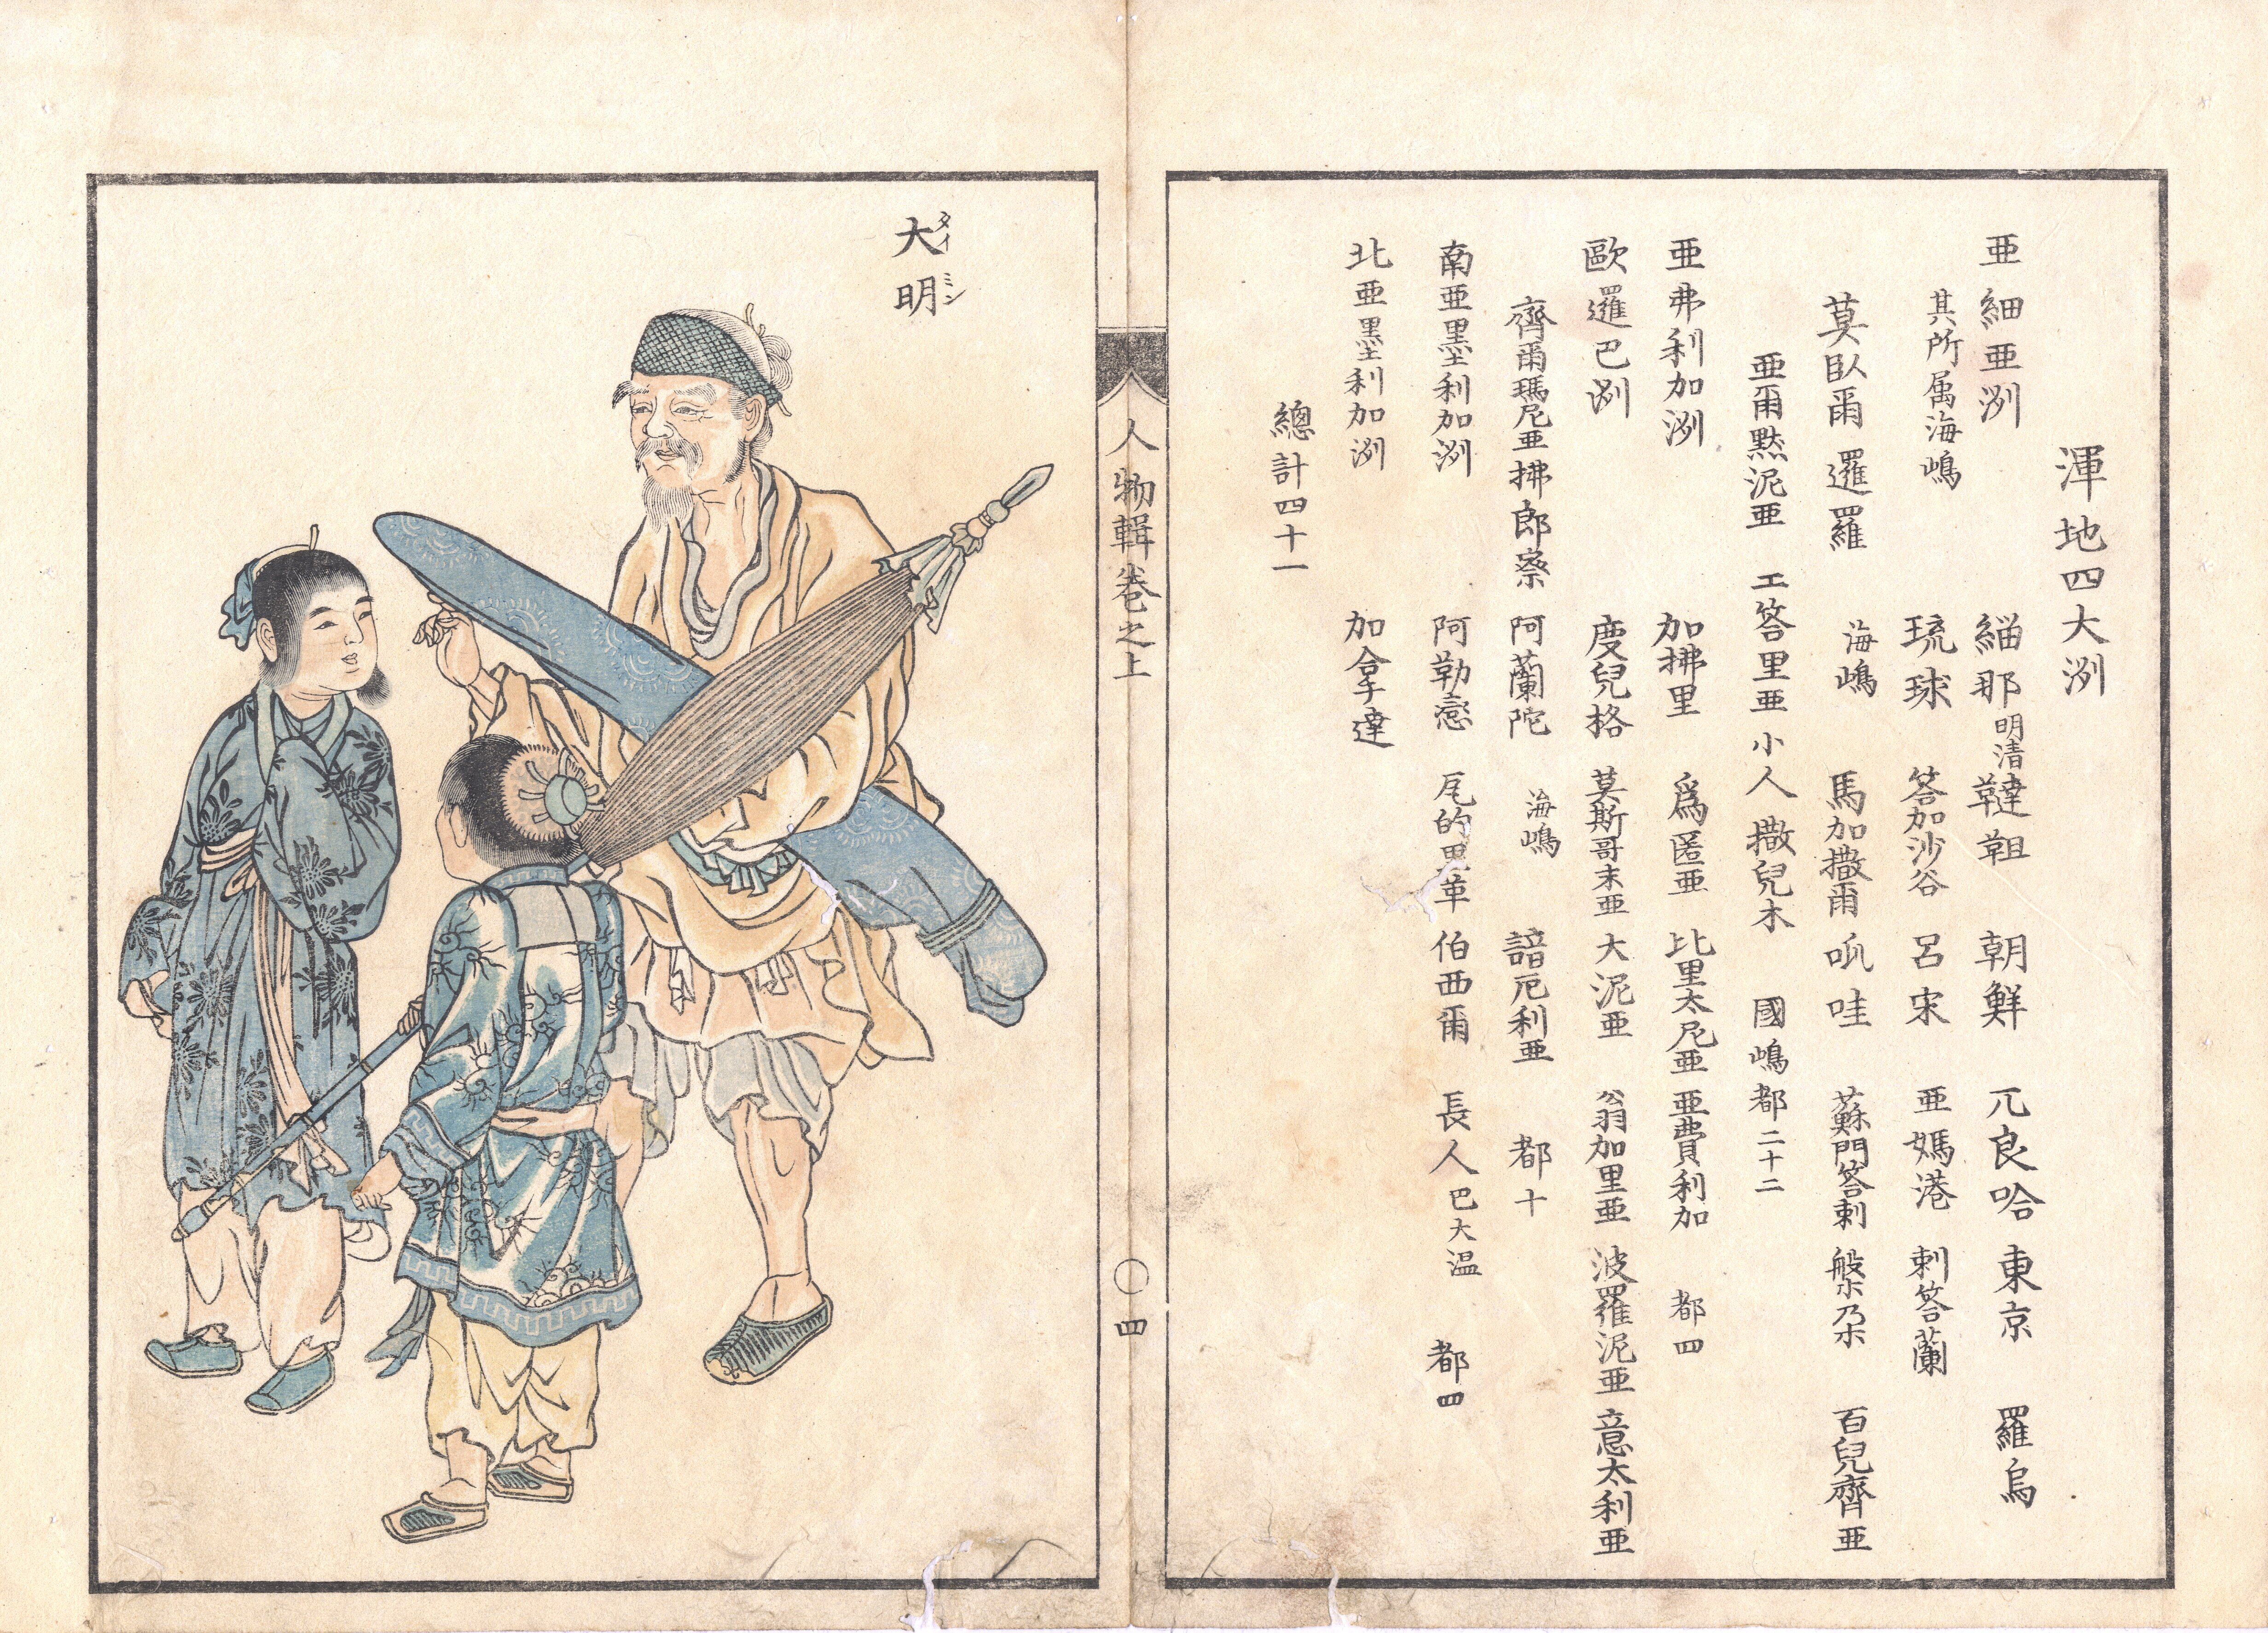 渾地四大洲
亜細亜洲 緇那 明清 韃靼 朝鮮 兀良哈 東京 羅烏
其所属海嶋 琉球 答加沙谷 呂宋 亜媽港 刺答蘭
莫臥爾 暹羅 海嶋 馬加撒爾 呱哇 蘇門答剌 槃朶 百兒齊亜
亜爾黙泥亜 工答里亜 小人 撒兒木 國嶋都二十二
亜弗利加洲 加拂里 爲匿亜 比里太尼亜 亜費利加 都四
歐邏巴洲 度兒格 莫斯哥末亜 大泥亜 翁加里亜 波羅泥亜 意太利亜
齊爾瑪尼亜 拂郎察 阿蘭陀 海嶋 諳厄利亜 都十
南亜墨利加洲 阿勒戀 伯西爾 長人 巴大温 都四
北亜墨利加洲 加拿達
總計四十一
人物輯巻之上 〇四
大明
タイミン